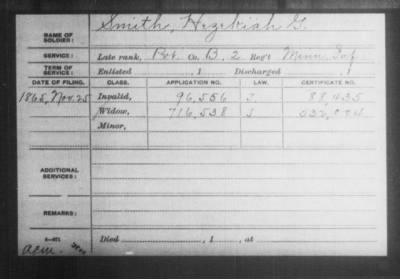 NAME OF SOLDIER: Smith, Hezekiah G.
SERVICE: Late rank, Pvt. Co. B, 2 Reg't Minn Inf
TERM OF SERVICE: Enlisted , 1 Discharged , 1
DATE OF FILING. CLASS. APPLICATION NO. LAW. CERTIFICATE NO.
1865, Nov. 25 Invalid, 96,556 88,435
Widow, 716,538
Minor,
ADDITIONAL SERVICES:
REMARKS:
Died , 1 , at